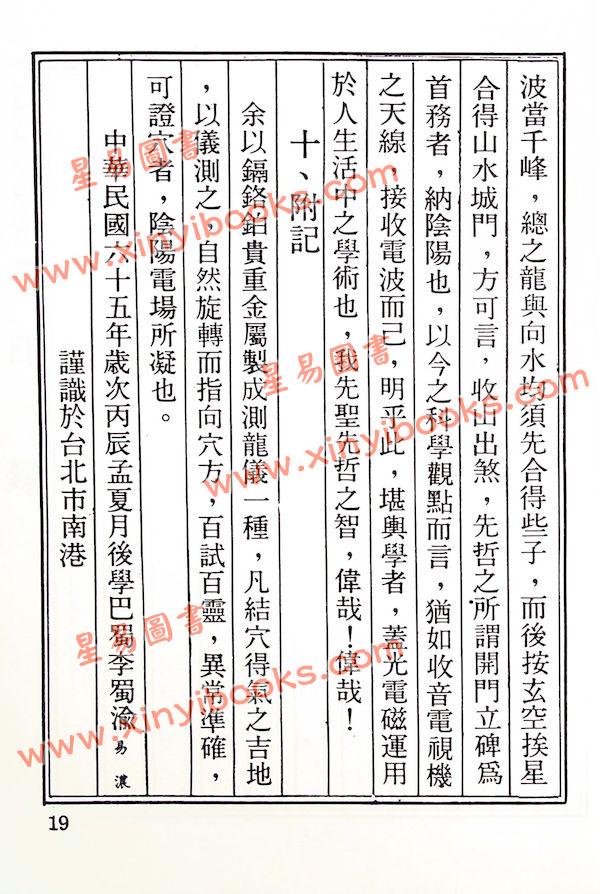 波當千峰，總之龍與向水均須先合得些子，而後按玄空挨星
合得山水城門，方可言，收山出煞，先哲之所謂開門立碑爲
首務者，納陰陽也，以今之科學觀點而言，猶如收音電視機
之天線，接收電波而已，明乎此，堪輿學者，蓋光電磁運用
於人生活中之學術也，我先聖先哲之智，偉哉！偉哉！
十、附記
余以鎘鉻鉑貴重金屬製成測龍儀一種，凡結穴得氣之吉地
，以儀測之，自然旋轉而指向穴方，百試百靈，異常準確，
可證穴者，陰陽電場所凝也。
中華民國六十五年歲次丙辰孟夏月後學巴蜀李蜀渝易濃
謹識於台北市南港
19
星易圖書
www.xinyibooks.com
星易圖書
www.xinyibooks.com
星易圖書
www.xinyibooks.com